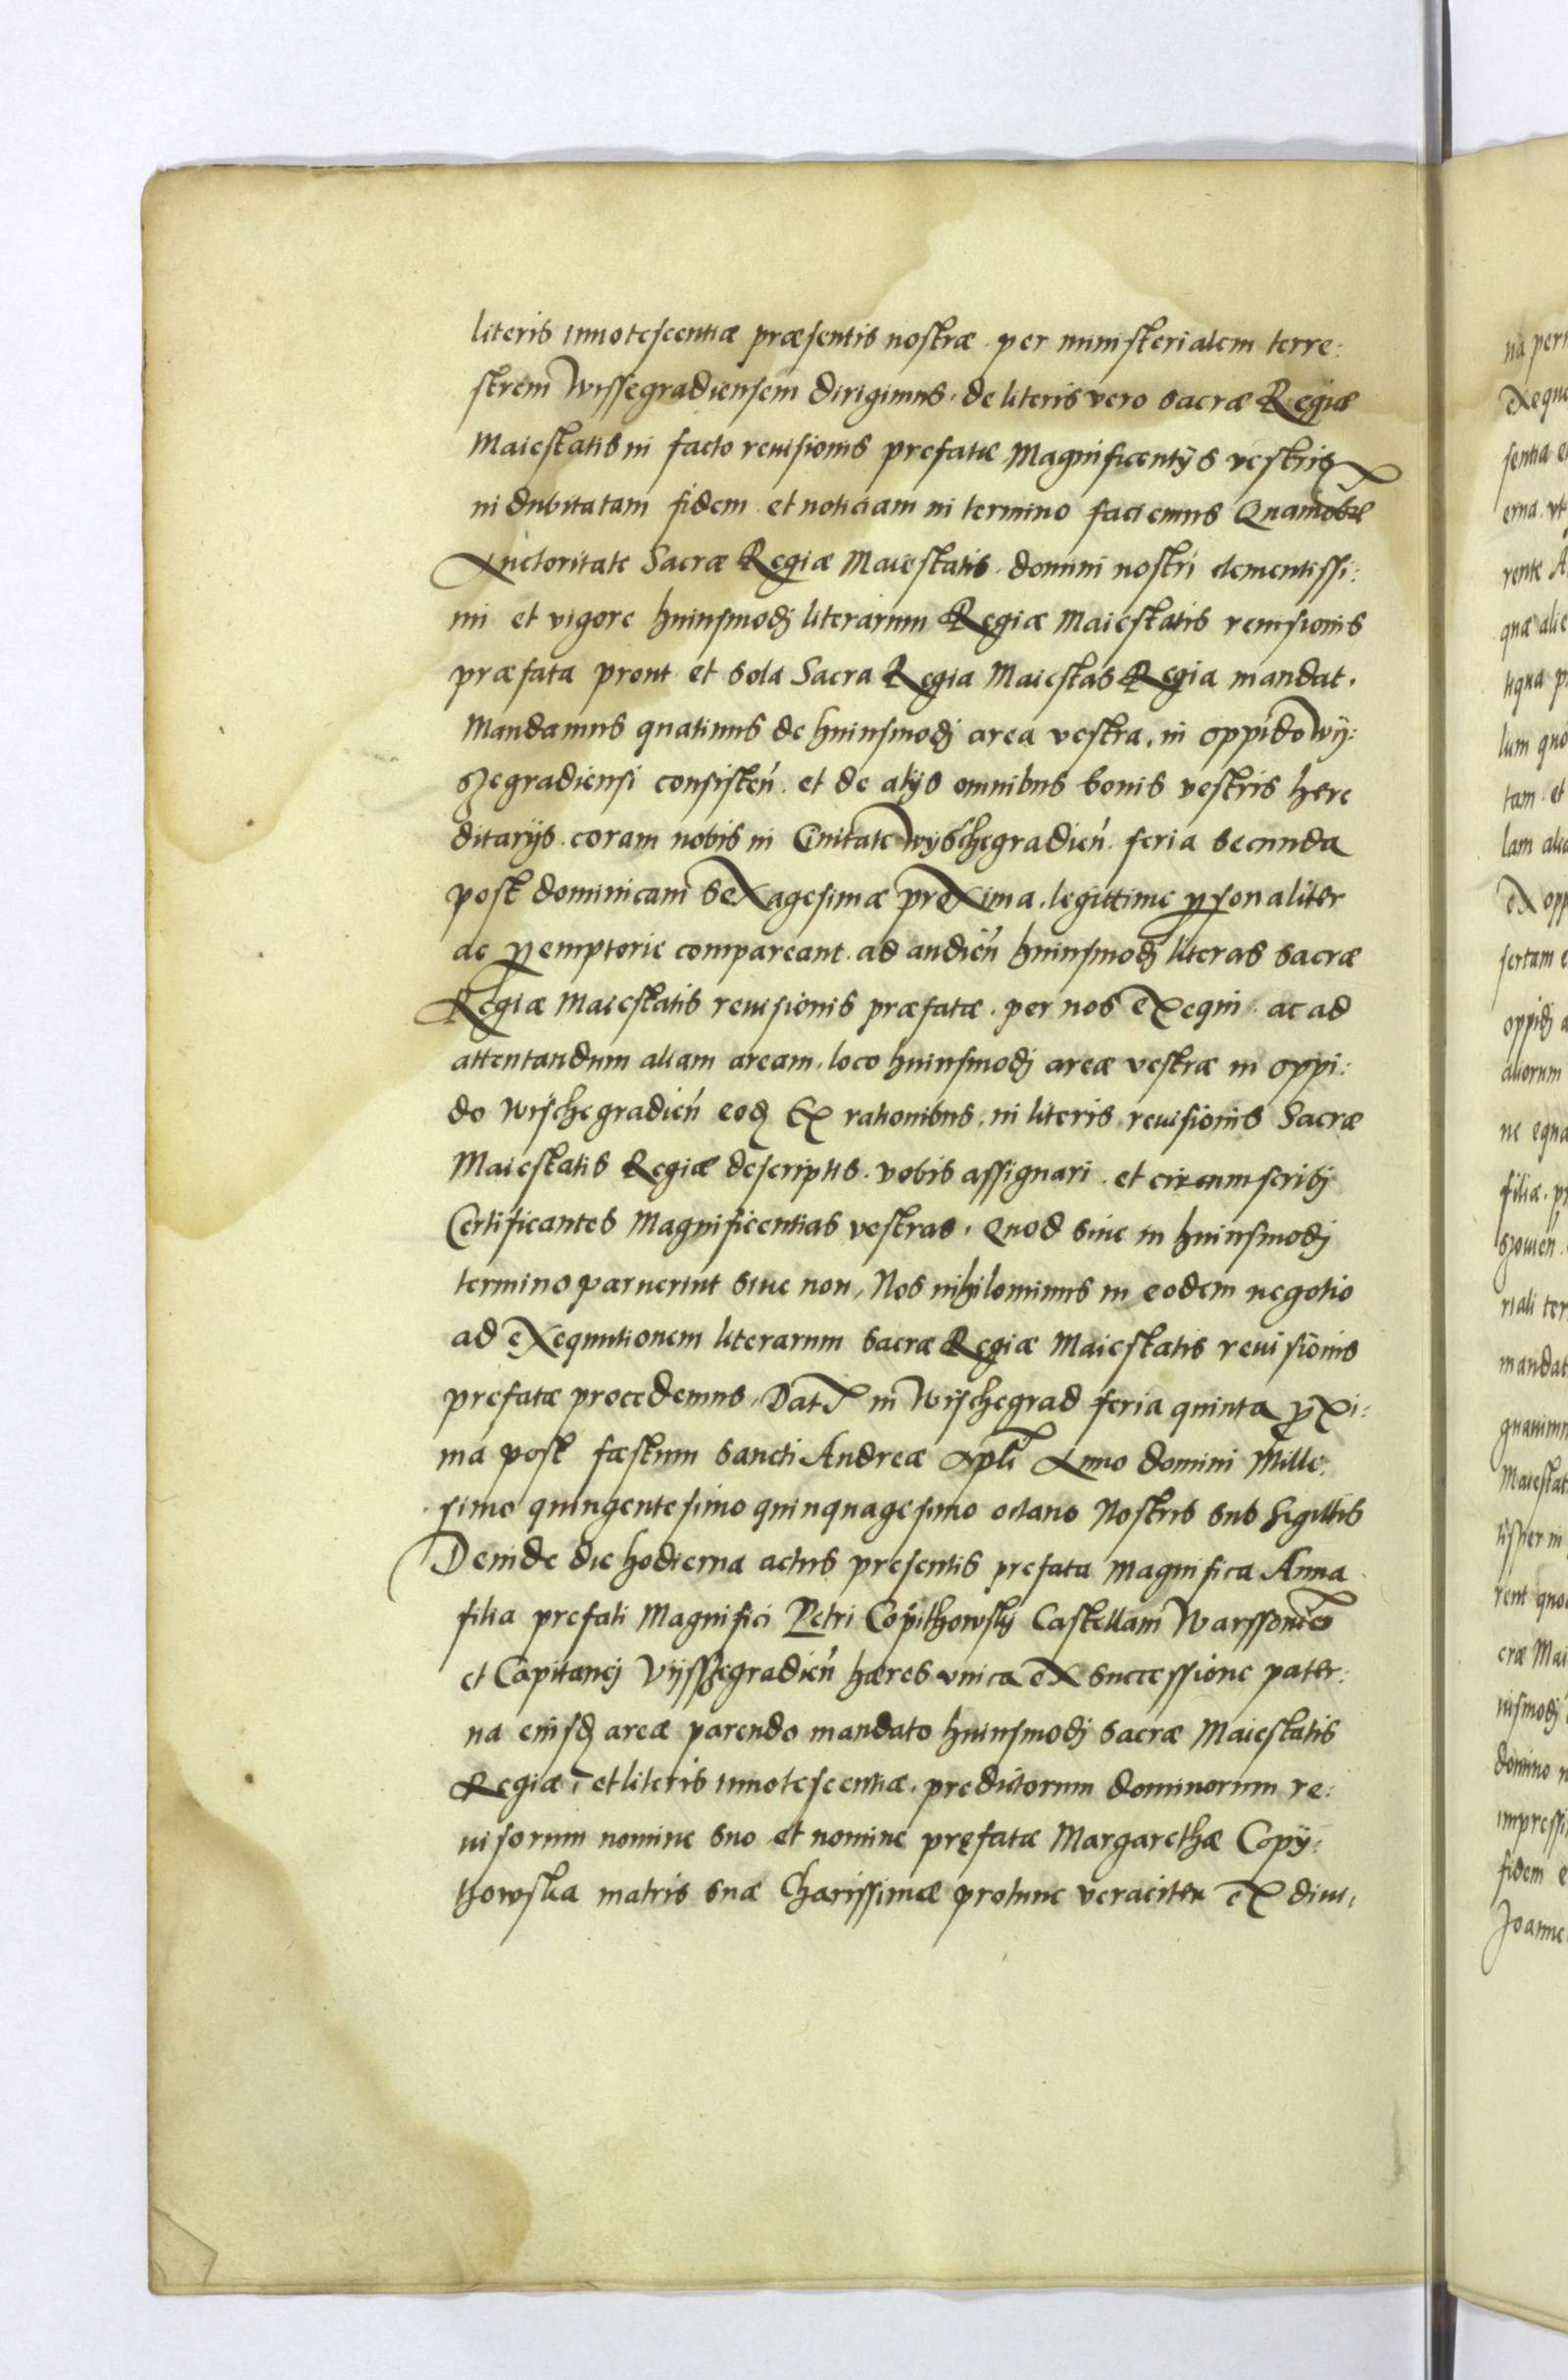 literis innotescentiæ præsentis nostræ per ministerialem terre:
strem Wissegradiensem dirigimus. de literis vero sacræ Regiæ
Maiestatis in facto reuisionis prefatæ Magnificentijs vestris
indubitatam fidem et noticiam in termino faciemus
Auctoritate Sacræ Regiæ Maiestatis domini nostri clementissi:
mi et vigore huiusmodj literarum Regiæ Maiestatis reuisionis
præfata prout et sola Sacra Regia Maiestas Regia mandat.
Mandamus quatinus de huiusmodj area vestra, in oppido Wÿ:
szegradiensi consisteń. et de alijs omnibus bonis vestris here
ditarijs coram nobis in Ciuitate Wÿschegradień. feria secunda
post dominicam sexagesimæ proxima, legittime ꝑsonaliter
ac ꝑemptorie compareant. ad audień huiusmodj literas sacræ
Regiæ Maiestatis reuisionis præfatæ. per nos exequi. ac ad
attentandum aliam aream, loco huiusmodj areæ vestræ in oppi:
do Wischegradień eodꝫ Ex rationibus, in literis reuisionis Sacræ
Maiestatis Regiæ descriptis. vobis assignari. et circumscribj
Certificantes Magnificentias vestras. Quod siue in huiusmodj
termino paruerint siue non, Nos nihilominus in eodem negotio
ad exequutionem literarum sacræ Regiæ Maiestatis reuisionis
prefatæ procedemus. Dat in Wischegrad feria quinta ꝓxi:
ma post fæstum sancti Andreæ Apli Anno domini Mille:
simo quingentesimo quinquagesimo octauo Nostris sub Sigillis
Deinde die hodierna actus presentis prefata Magnifica Anna
filia prefati Magnifici Petri Copithowskj Castellani
et Capitanej Vijsszegradień hæres vnica ex successione pater:
na eiusdꝫ areæ parendo mandato huiusmodj sacræ Maiestatis
Regiæ, et literis innotescentiæ. predictorum dominorum re:
uisorum nomine suo et nomine pręfatæ Margarethæ Copÿ:
thowska matris suæ Charissimæ protunc veraciter ex diui,